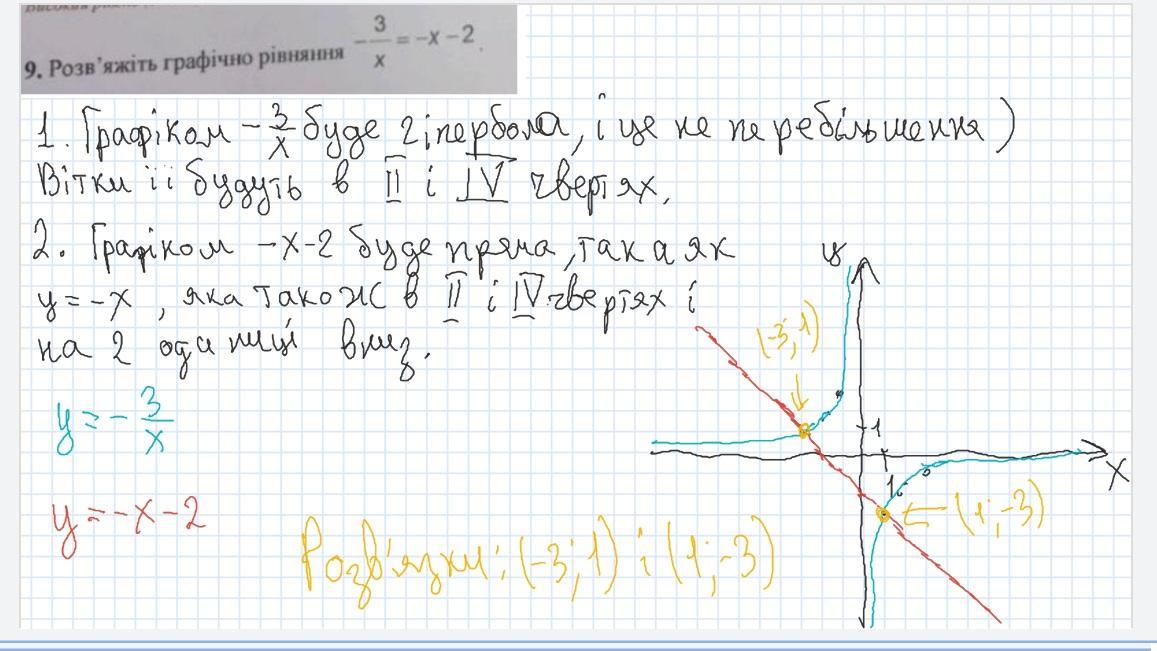 9. Розв'яжіть графічно рівняння -3/x = -x - 2.
1. Графіком -3/x буде гіпербола, і це не перебільшення)
Вітки її будуть в II і IV чвертях.
2. Графіком -x-2 буде пряма, така як
y = -x, яка також в II і IV чвертях і
на 2 одиниці вниз.
y = -3/x
y = -x-2
y
(-3; 1)
1
x
1
(1; -3)
Розв'язки: (-3; 1) і (1; -3)